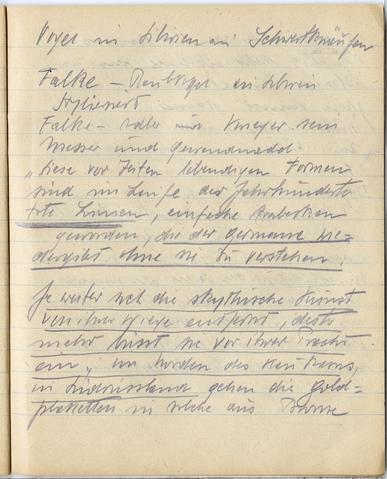 Vogel in Sibirien
Falke – Raubvogel in Sibirien
Stylisiert
Falke – Adler und
Messer und
„Diese vor Zeiten lebendigen Formen
sind im Laufe der Jahrhunderte
tote Linien, einfache Arabesken
geworden, die der Germane wie-
dergibt ohne sie zu verstehen.
Je weiter sich die skythische Kunst
von ihrer Wiege entfernt, desto
mehr büsst sie von ihrer Pracht
ein," im Norden des Kaukasus,
in Südrussland gehen die Gold-
plaketten in solche aus Bronze